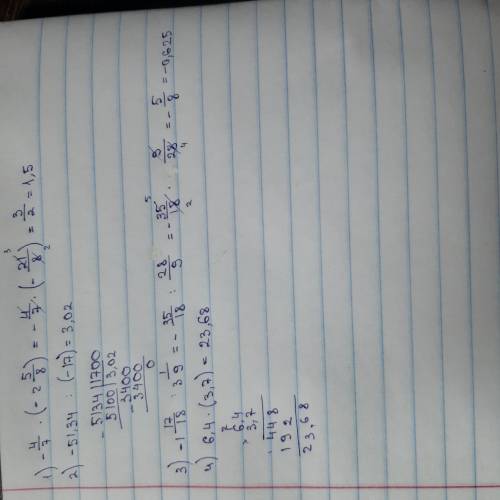 1) -4/7 · (-2 5/8) = -4/7 · (-21/8) = 3/2 = 1,5
3 2
2) -51,34 : (-17) = 3,02
- 5134 | 1700
5100 | 3,02
- 3400
3400
0
3) -1 17/18 : 3 1/9 = -35/18 : 28/9 = -35/18 · 9/28 = -5/8 = -0,625
5 2 4
4) 6,4 · (3,7) = 23,68
× 6,4
3,7
448
192
23,68